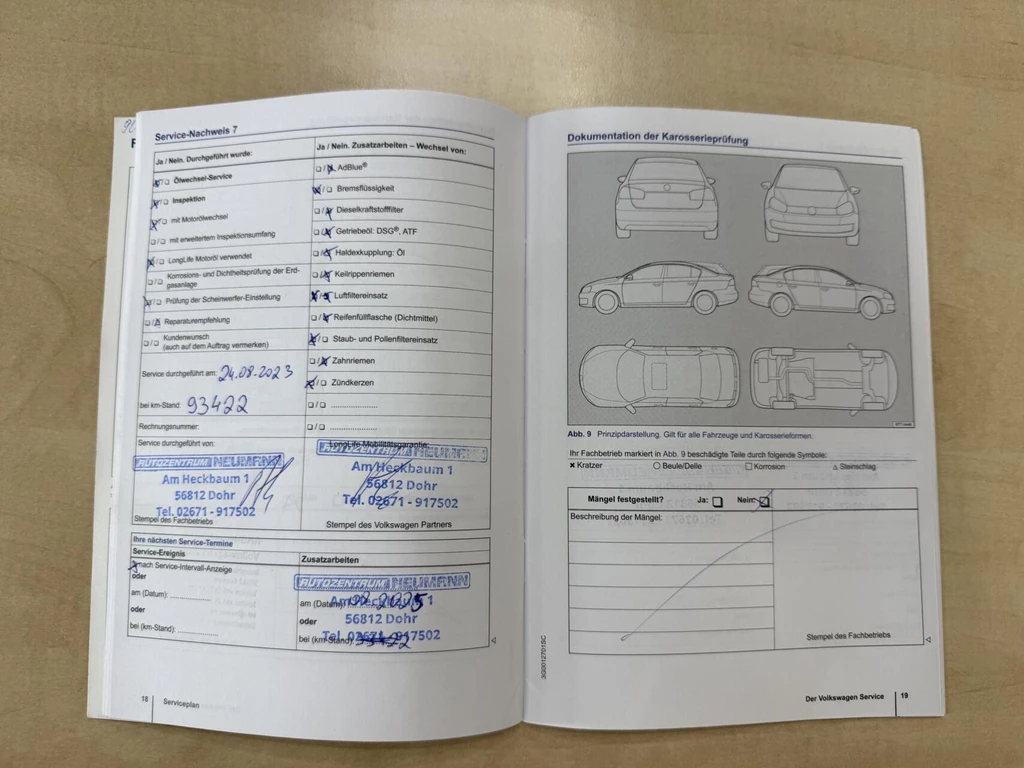 Service-Nachweis 7
Ja / Nein. Durchgeführt wurde:
Ölwechsel-Service
Inspektion
mit Motorölwechsel
mit erweitertem Inspektionsumfang
LongLife Motoröl verwendet
Korrosions- und Dichtheitsprüfung der Erd-
gasanlage
Prüfung der Scheinwerfer-Einstellung
Reparaturempfehlung
Kundenwunsch
(auch auf dem Auftrag vermerken)
Service durchgeführt am: 24.08.2023
bei km-Stand: 93422
Rechnungsnummer:
Service durchgeführt von:
AUTOZENTRUM NEUMANN
Am Heckbaum 1
56812 Dohr
Tel. 02671 - 917502
Stempel des Fachbetriebs
Ja / Nein. Zusatzarbeiten – Wechsel von:
AdBlue®
Bremsflüssigkeit
Dieselkraftstofffilter
Getriebeöl: DSG®, ATF
Haldexkupplung: Öl
Keilrippenriemen
Luftfiltereinsatz
Reifenfüllflasche (Dichtmittel)
Staub- und Pollenfiltereinsatz
Zahnriemen
Zündkerzen
LongLife-Mobilitätsgarantie:
AUTOZENTRUM NEUMANN
Am Heckbaum 1
56812 Dohr
Tel. 02671 - 917502
Stempel des Volkswagen Partners
Ihre nächsten Service-Termine
Service-Ereignis
nach Service-Intervall-Anzeige
oder
am (Datum):
oder
bei (km-Stand):
Zusatzarbeiten
AUTOZENTRUM NEUMANN
am (Datum): Am Heckbaum 1
oder 56812 Dohr
bei (km-Stand) Tel. 02671 - 917502
18 Serviceplan
Dokumentation der Karosserieprüfung
Abb. 9 Prinzipdarstellung. Gilt für alle Fahrzeuge und Karosserieformen.
Ihr Fachbetrieb markiert in Abb. 9 beschädigte Teile durch folgende Symbole:
Kratzer Beule/Delle Korrosion Steinschlag
Mängel festgestellt? Ja: Nein:
Beschreibung der Mängel:
Stempel des Fachbetriebs
3G0012701SC
Der Volkswagen Service 19